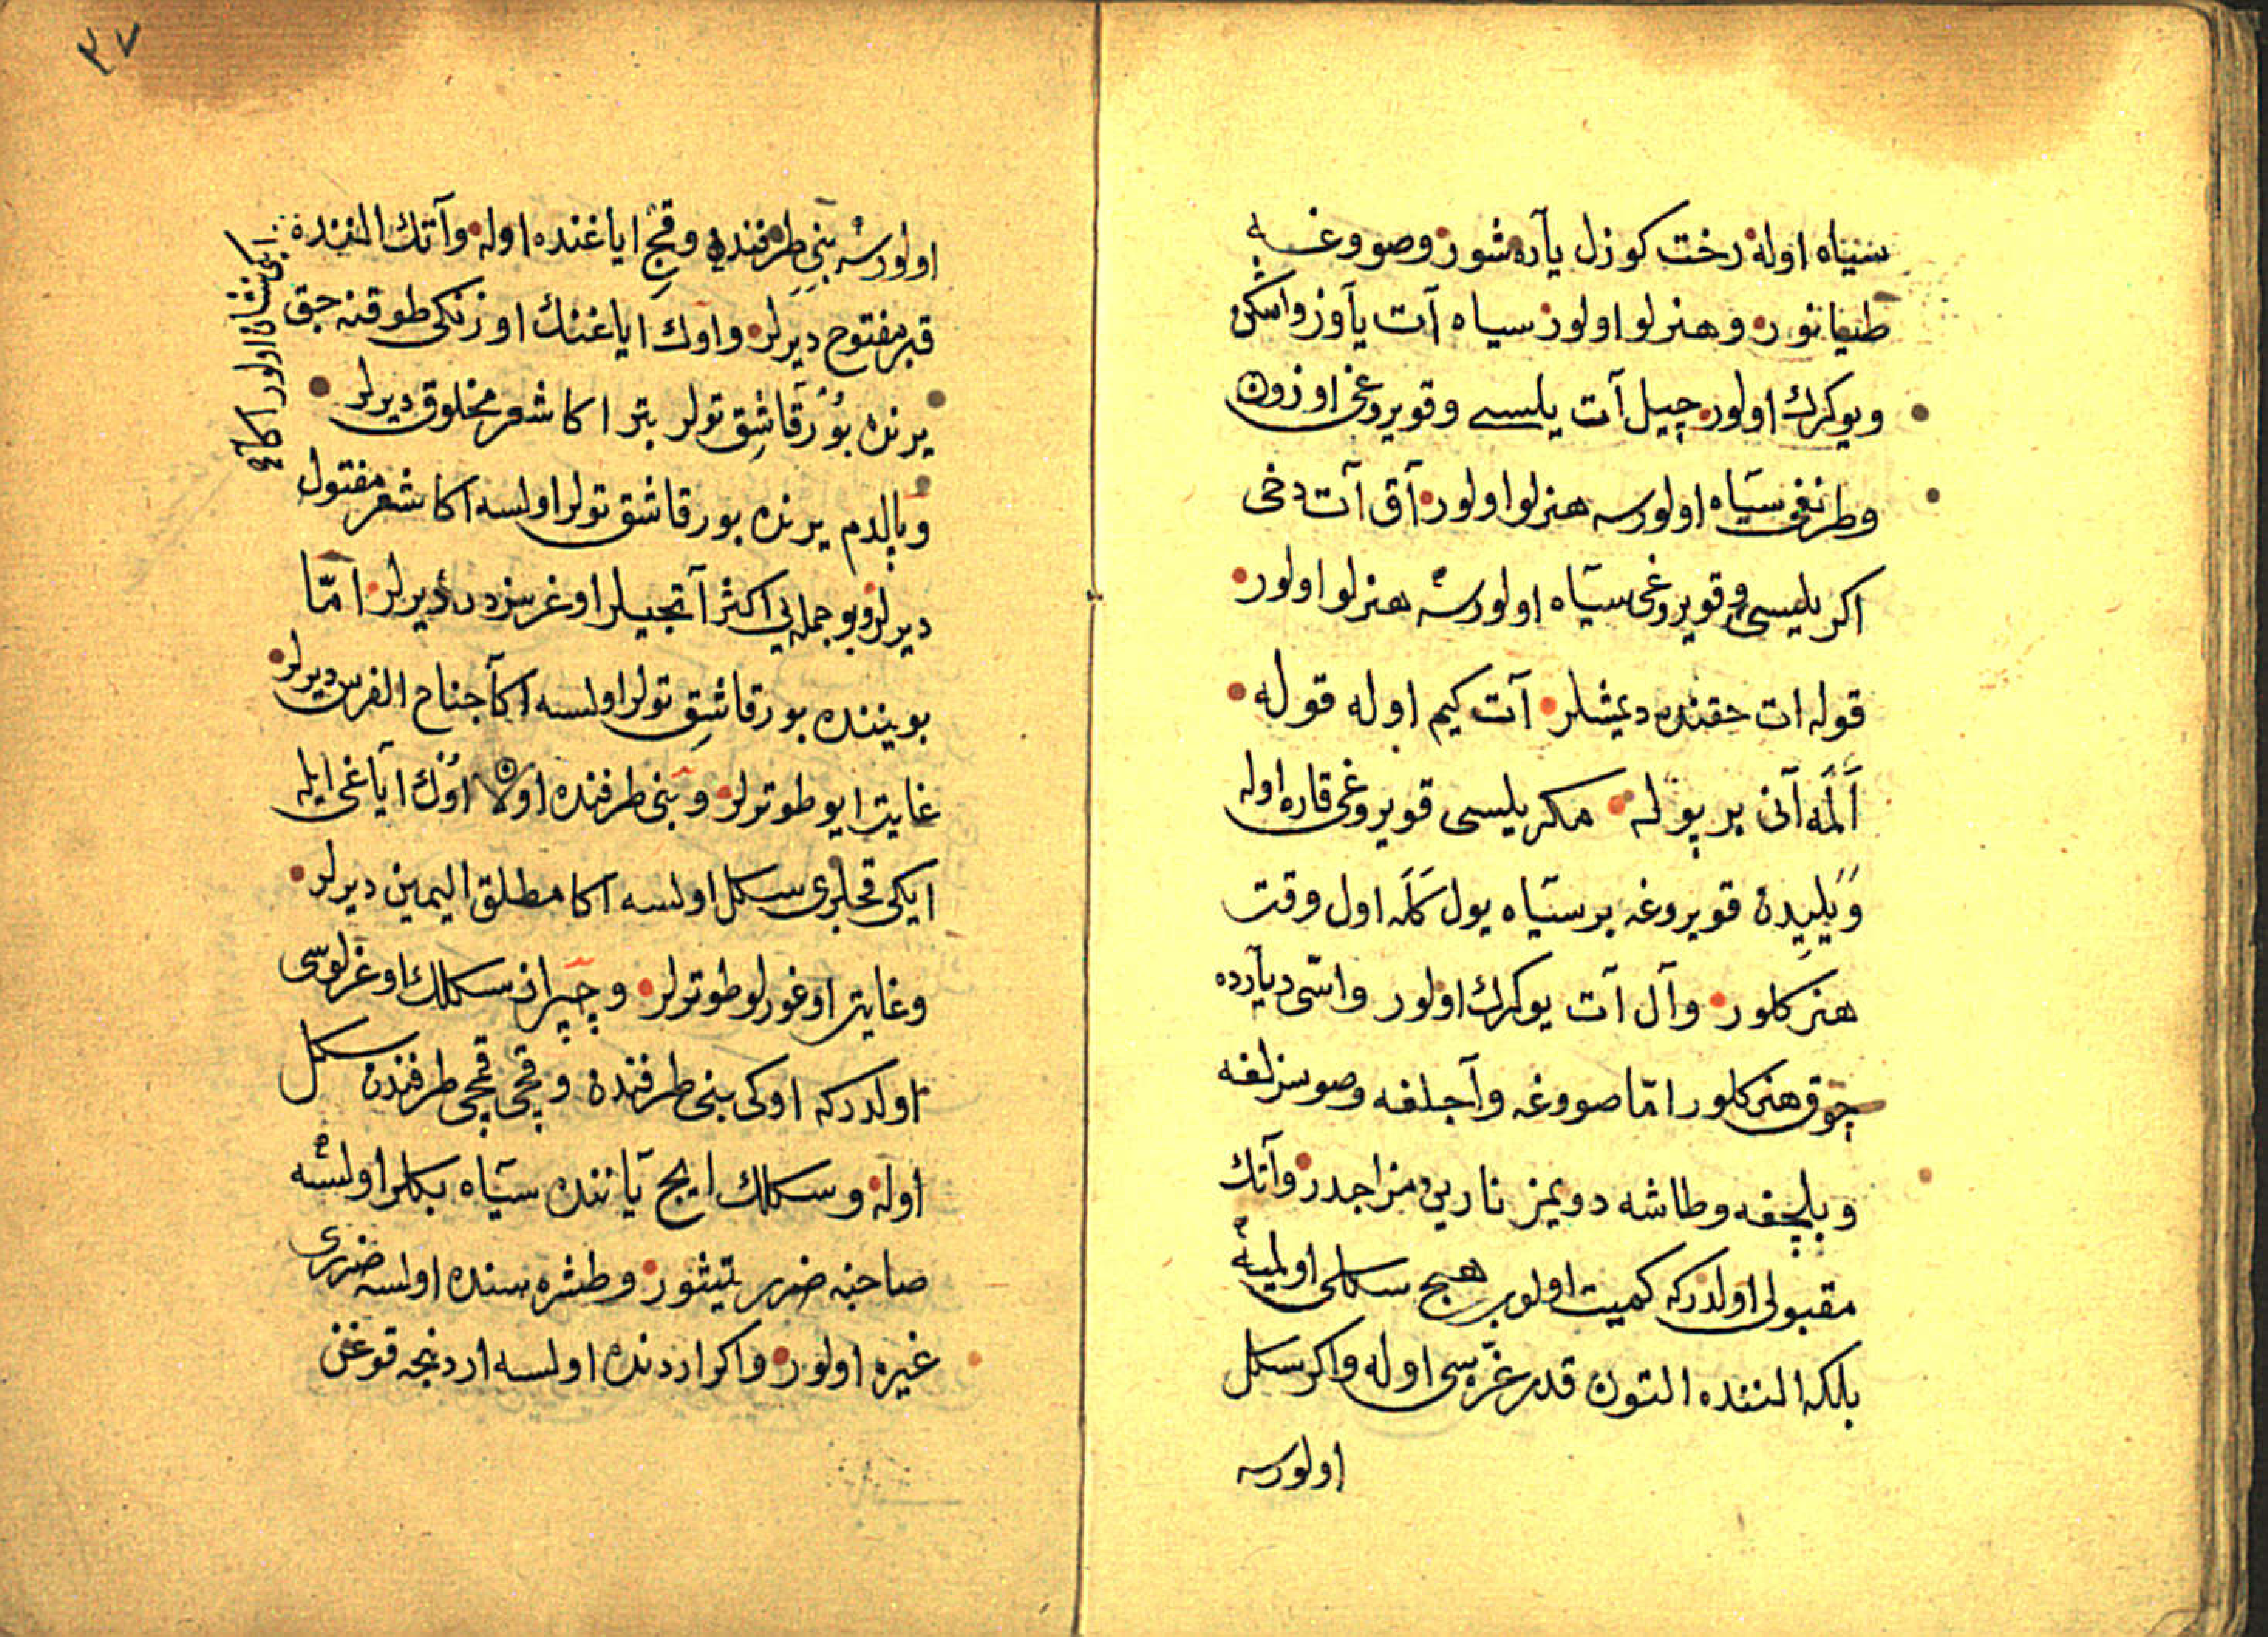 سیاه اوله رخت کوزل یاره شور وصووغه
طیانور وهنرلو اولور سیاه آت یاوز واشکن
ویوکرك اولور چپل آت یلسی وقویروغی اوزون
وطرنغی سیاه اولورسه هنرلو اولور آق آت دخی
اکر یلیسی وقویروغی سیاه اولورسه هنرلو اولور
قوله ات حقنده دیمشلر آت کیم اوله قوله
اَلْمَه آنی بر پوله مکر یلیسی قویروغی قاره اوله
ویلیدن قویروغه بر سیاه یول کَلَه اول وقت
هنر کلور وآل آت یوکرك اولور واسّی دیارده
چوق هنر کلور امّا صووغه وآجلغه وصوسزلغه
وبلچغه وطاشه دویمز نارین مزاجدر وآتك
مقبولی اولدرکه کمیت اولوب هیچ سکلی اولمیه
بلکه النّنده التون قدر غرّه سی اوله واکر سکل
اولورسه
٣٧
اولورسه بنی طرفنده وقچ ایاغنده اوله وآتك النّنده
ایکی نشان اولور اکا
قبر مفتوح دیرلر واوك ایاغنك اوزنکی طوقنه جق
یرنده بورقاشق تولر بتر اکا شعر مخلوق دیرلر
وپالدم یرنده بورقاشق تولر اولسه اکا شعر مقتول
دیرلر وبو جمله یی اکثر آتجیلر اوغرسزدر دیرلر امّا
بویننده بورقاشق تولر اولسه اکا جناح الفرس دیرلر
غایت ایو طوتولر وبنی طرفنده اولان اوڭ ایاغی ایله
ایکی قچلری سکل اولسه اکا مطلق الیمین دیرلر
وغایت اوغورلو طوتولر وچپراز سکلك اوغرلوسی
اولدرکه اوکی بنی طرفنده وقچی قمچی طرفندن سکل
اوله وسکلك ایچ یاننده سیاه بکلر اولسه
صاحبنه ضرر یتیشور وطشره سنده اولسه ضرری
غیره اولور واکر اردنده اولسه اردنجه قوغن